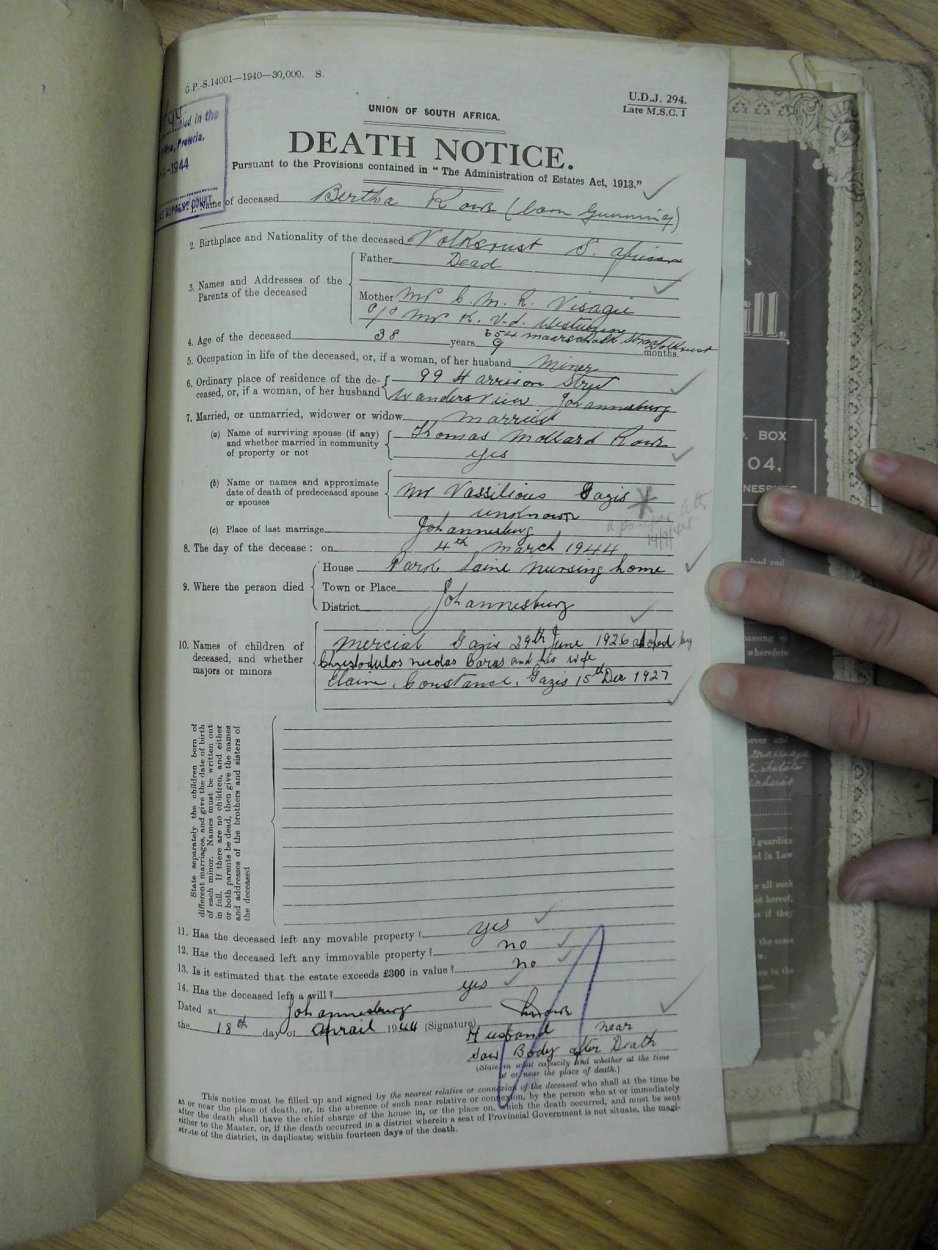 G.P.-S.14001—1940—30,000. S.
U.D.J. 294.
Late M.S.C. 1
UNION OF SOUTH AFRICA.
DEATH NOTICE.
Pursuant to the Provisions contained in "The Administration of Estates Act, 1913."
in the
Pretoria.
-1944
COURT
1. Name of deceased Bertha Rowe (born Gunning)
2. Birthplace and Nationality of the deceased Volksrust S. african
3. Names and Addresses of the Parents of the deceased
Father Dead
Mother Mr C. M. R. Visagie
c/o Mr K. v.d. Westuizen
654 maarschalk Street Volksrust
4. Age of the deceased 38 years 9 months.
5. Occupation in life of the deceased, or, if a woman, of her husband Miner
6. Ordinary place of residence of the deceased, or, if a woman, of her husband
99 Harrison Street
Wanders View Johannesburg
7. Married, or unmarried, widower or widow married
(a) Name of surviving spouse (if any) and whether married in community of property or not
Thomas Mollard Rowe
yes
(b) Name or names and approximate date of death of predeceased spouse or spouses
Mr Vassilious Gazis
unknown
(c) Place of last marriage Johannesburg
8. The day of the decease: on 4th March 1944
9. Where the person died
House Park Lane nursing home
Town or Place
District Johannesburg
10. Names of children of deceased, and whether majors or minors
Mercial Gazis 29th June 1926 adoped by
Christodulos nicolas Caras and his wife
Elaine, Constance, Gazis 15th Dec 1927
State separately the children born of different marriages, and give the date of birth of each minor. Names must be written out in full. If there are no children, and either or both parents be dead, then give the names and addresses of the brothers and sisters of the deceased
11. Has the deceased left any movable property? yes
12. Has the deceased left any immovable property? no
13. Is it estimated that the estate exceeds £300 in value? no
14. Has the deceased left a will? yes
Dated at Johannesburg
the 18th day of Aprail 1944 (Signature)
Husband near
Saw Body after Death
(State in what capacity and whether at the time at or near the place of death.)
This notice must be filled up and signed by the nearest relative or connexion of the deceased who shall at the time be
at or near the place of death, or, in the absence of such near relative or connexion, by the person who at or immediately
after the death shall have the chief charge of the house in, or the place on, which the death occurred, and must be sent
either to the Master, or, if the death occurred in a district wherein a seat of Provincial Government is not situate, the magi-
strate of the district, in duplicate, within fourteen days of the death.
BOX
04,
guardian
ed in Law
all such
hereof,
as if they
the same